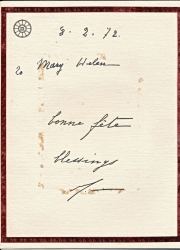 8. 2. 72.
to Mary Helen
bonne fête
blessings